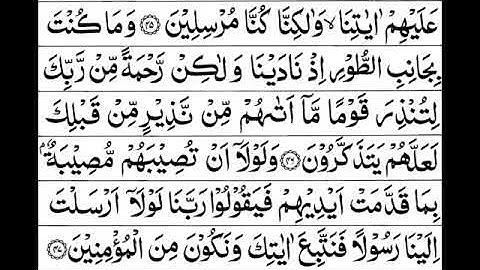 عَلَيۡهِمۡ اٰيٰتِنَا ۙ وَلٰـكِنَّا كُنَّا مُرۡسِلِيۡنَ ﴿۴۵﴾ وَمَا كُنۡتَ
بِجَانِبِ الطُّوۡرِ اِذۡ نَادَيۡنَا وَلٰـكِنۡ رَّحۡمَةً مِّنۡ رَّبِّكَ
لِتُنۡذِرَ قَوۡمًا مَّاۤ اَتٰٮهُمۡ مِّنۡ نَّذِيۡرٍ مِّنۡ قَبۡلِكَ
لَعَلَّهُمۡ يَتَذَكَّرُوۡنَ ﴿۴۶﴾ وَلَوۡلَاۤ اَنۡ تُصِيۡبَهُمۡ مُّصِيۡبَةٌۢ
بِمَا قَدَّمَتۡ اَيۡدِيۡهِمۡ فَيَقُوۡلُوۡا رَبَّنَا لَوۡلَاۤ اَرۡسَلۡتَ
اِلَيۡنَا رَسُوۡلًا فَنَتَّبِعَ اٰيٰتِكَ وَنَكُوۡنَ مِنَ الۡمُؤۡمِنِيۡنَ ﴿۴۷﴾